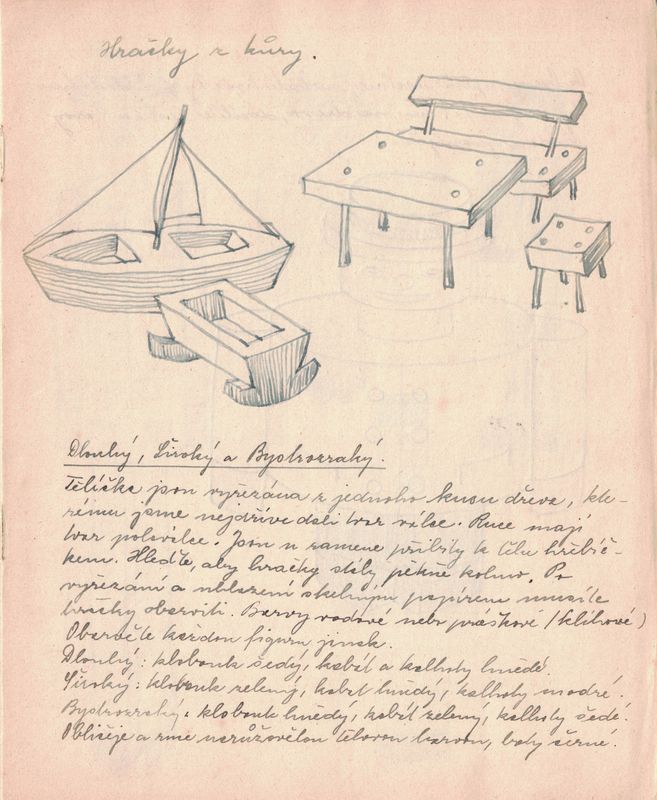 Hračky z kůry.
Dlouhý, Široký a Bystrozraký.
Tělíčka jsou vyřezána z jednoho kusu dřeva, kte-
rému jsme nejdříve dali tvar válce. Ruce mají
tvar poloválce. Jsou u ramene přibity k tělu hřebíč-
kem. Hleďte, aby hračky stály pěkně kolmo. Po
vyřezání a uhlazení skelným papírem musíte
hračky obarviti. Barvy vodové nebo práškové (klihové)
Obarvěte každou figuru jinak.
Dlouhý: klobouk šedý, kabát a kalhoty hnědé.
Široký: klobouk zelený, kabát hnědý, kalhoty modré.
Bystrozraký: klobouk hnědý, kabát zelený, kalhoty šedé.
Obličeje a ruce narůžovělou tělovou barvou, boty černé.